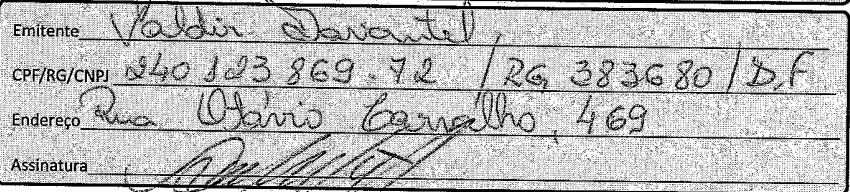 Emitente Valdir Davantel,
CPF/RG/CNPJ 240 123 869.72 / RG 383680 / D.F
Endereço Rua Otávio Carvalho, 469
Assinatura